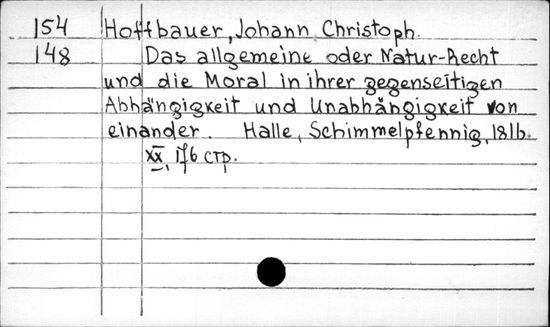 154 Hoffbauer, Johann Christoph.
148 Das allgemeine oder Natur-Recht
und die Moral in ihrer gegenseitigen
Abhängigkeit und Unabhängigkeit von
einander. Halle, Schimmelpfennig, 1816.
XX, 176 стр.